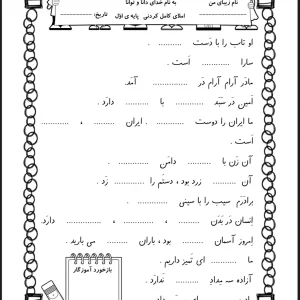 به نام خدای دانا و توانا
نام زیبای من
املای کامل کردنی پایه ی اوّل
تاریخ:
او تاب را با دَست .......... .
سارا .......... اَست .
مادَر آرام آرام دَر .......... آمَد.
اَمین دَر سَبَد .......... با .......... دارَد .
ما ایران را دوست .......... . ایران .......... ، ..........
اَست .
آن زَن با .......... دامَن .......... .
آن .......... زَرد بود ، دستَم را .......... زَد .
بَرادَرَم سیب را با سینی .......... .
اِنسان دَر بَدَن .......... ، .......... ، .......... دارَد.
اِمروز آسمان .......... بود ، باران .......... می بارید .
ما .......... ای تَمیز داریم .
آزاده سه مِداد .......... نَدارَد .
بازخورد آموزگار